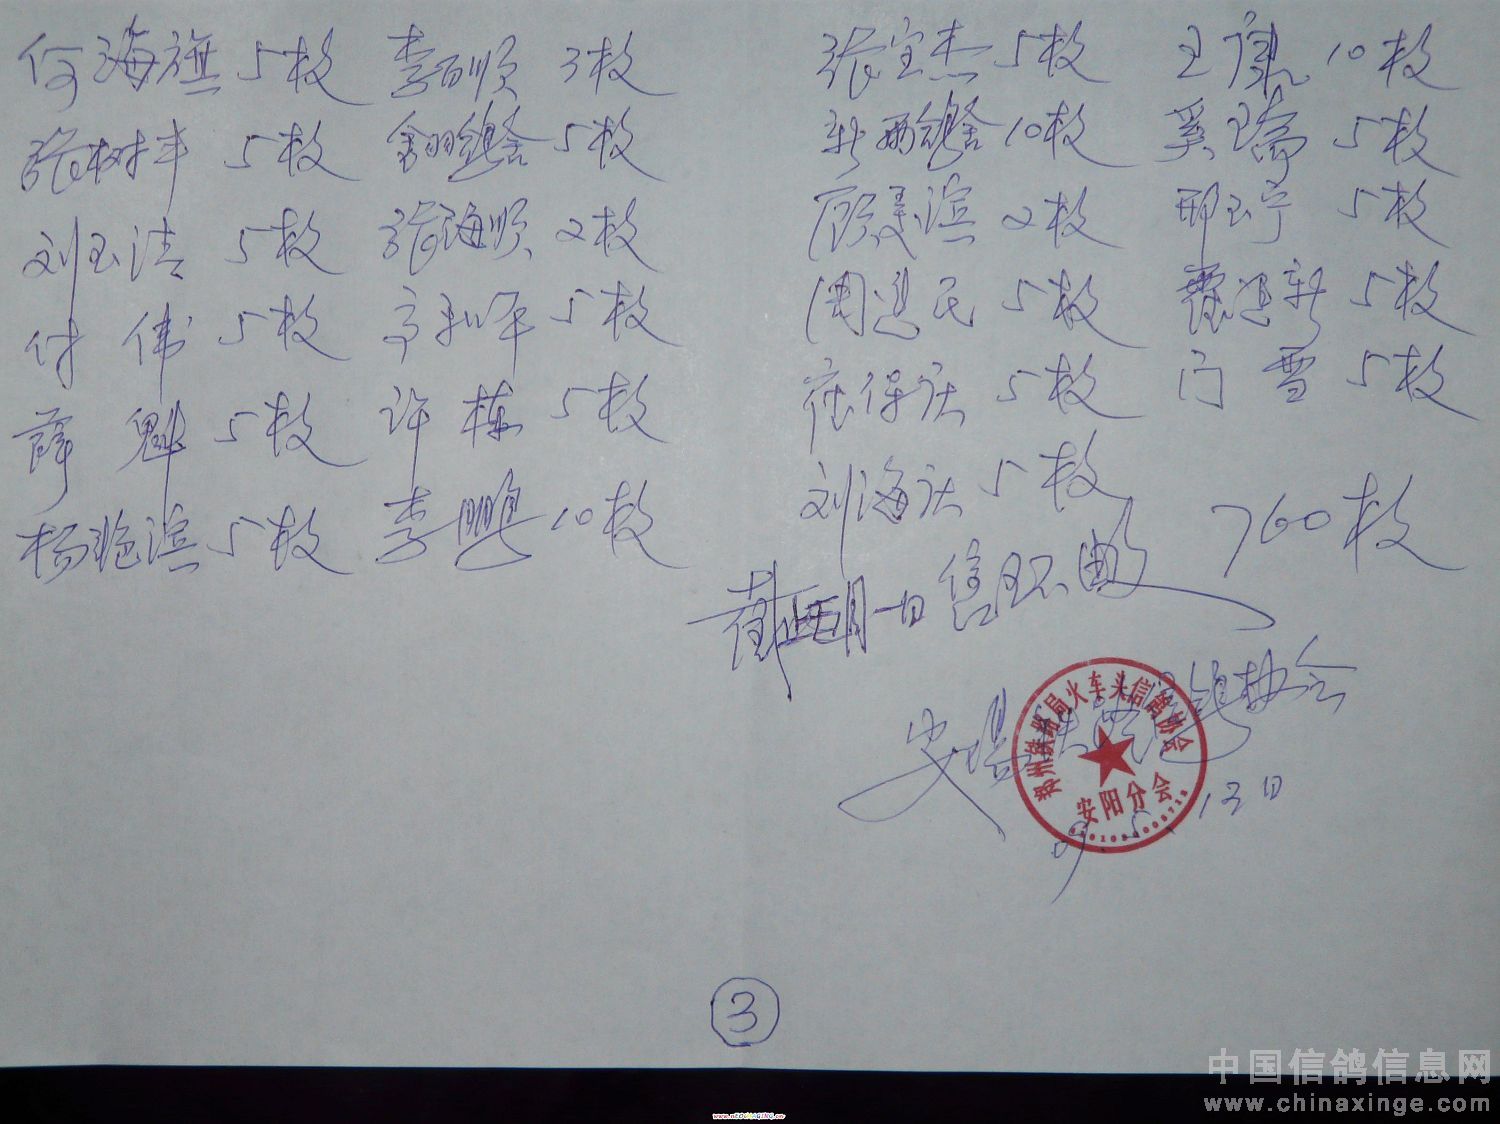 何海旗 5枚 李百顺 3枚 張宝杰 5枚 王康 10枚
張树丰 5枚 鸽舍 5枚 新 鸽舍 10枚 奚瑞 5枚
刘玉洁 5枚 張海顺 2枚 顾 滨 2枚 邢玉宁 5枚
付伟 5枚 5枚 周进民 5枚 新 5枚
薛魁 5枚 许栋 5枚 保庆 5枚 门雪 5枚
杨艳滨 5枚 李鹏 10枚 刘海庆 5枚
760枚
截止五月一日售环
安阳 鸽协会
郑州铁路局火车头信鸽协会
安阳分会
09.5.13日
③
中国信鸽信息网
www.chinaxinge.com